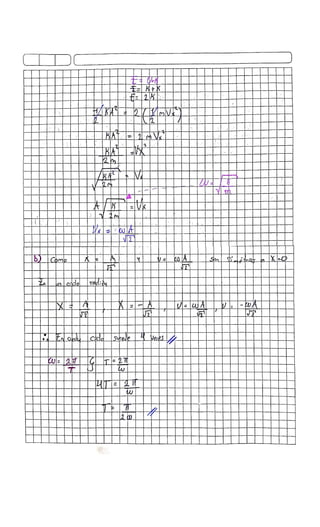 E = U+K
E = K+K
E = 2K
1/2 KA² = 2 (1/2 m Vx²)
KA² = 2 m Vx²
KA²/2m = Vx²
√(KA²/2m) = Vx
ω = √(k/m)
A √(K/2m) = Vx
Vx = ωA/√2
b) Como X = A/√2 y v = ωA/√2 son a X=0
En un ciclo
X = A/√2 , X = -A/√2 , v = ωA/√2 , v = -ωA/√2
∴ En cada ciclo sucede 4 veces //
ω = 2π/T T = 2π/ω
4T = 2π/ω
T = π/2ω //